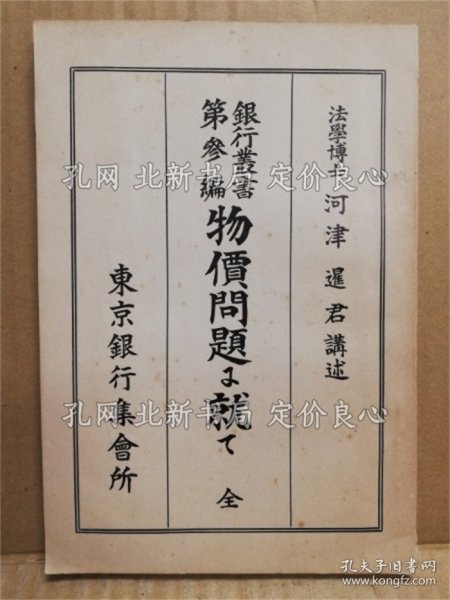 法學博士 河津暹君講述
銀行叢書
第參編
物價問題に就て 全
東京銀行集會所
孔网 北新书局 定价良心
孔网 北新书局 定价良心
孔夫子旧书网
www.kongfz.com